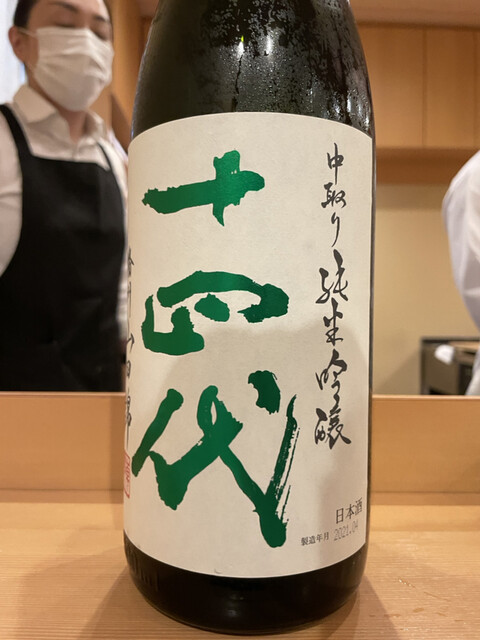 中取り純米吟醸
十四代
日本酒
製造年月 2021.04